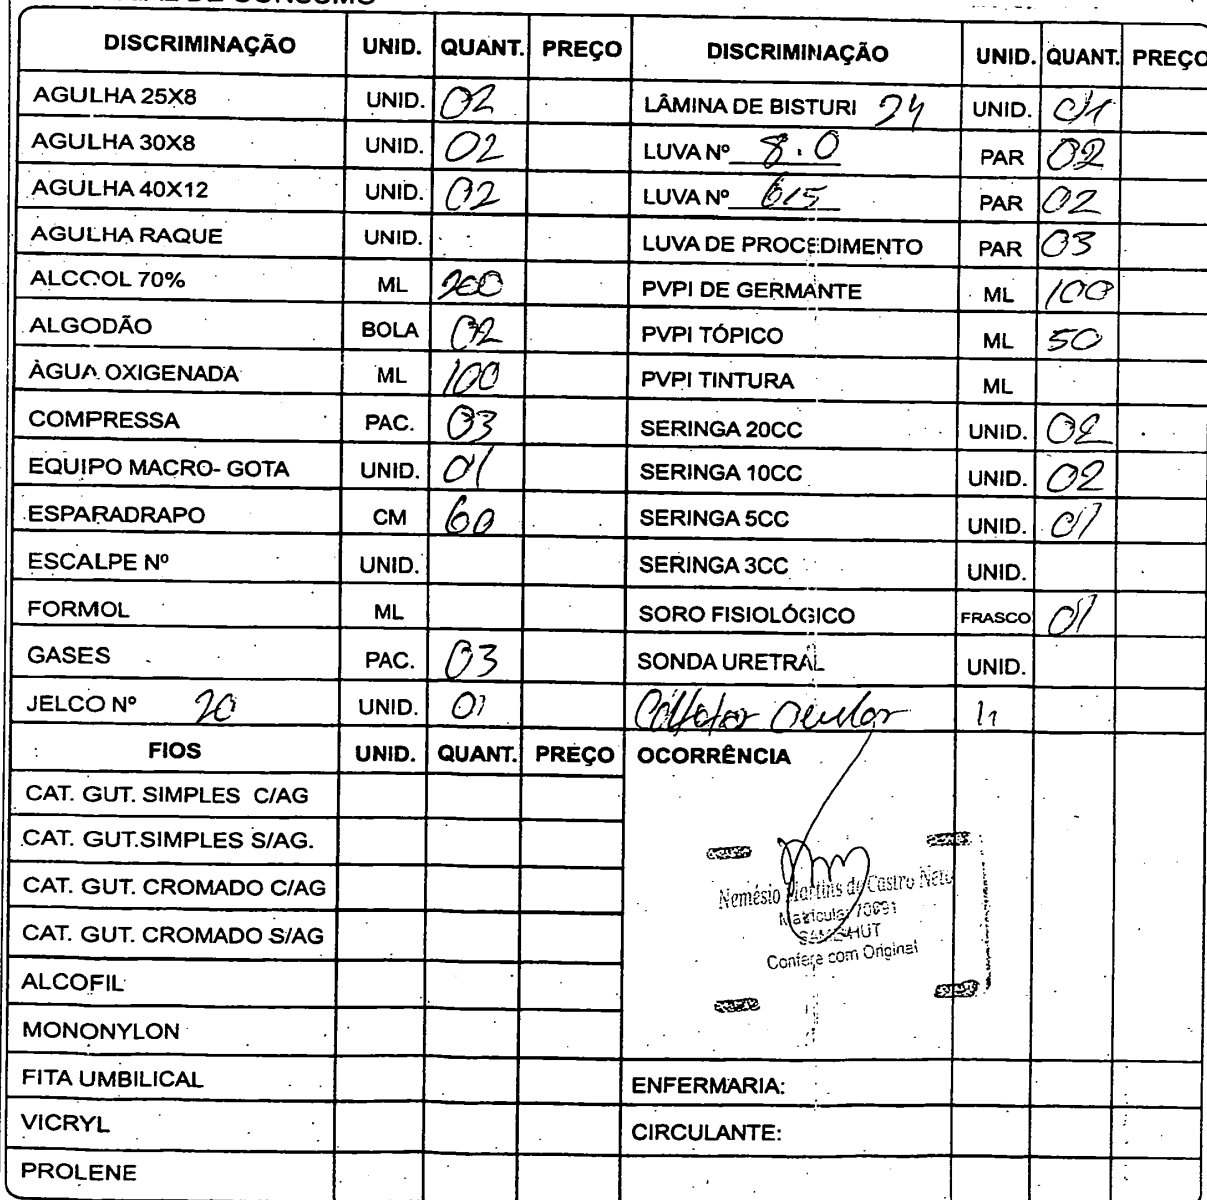 DISCRIMINAÇÃO UNID. QUANT. PREÇO DISCRIMINAÇÃO UNID. QUANT. PREÇO
AGULHA 25X8 UNID. 02 LÂMINA DE BISTURI 24 UNID. 01
AGULHA 30X8 UNID. 02 LUVA Nº 8.0 PAR 02
AGULHA 40X12 UNID. 02 LUVA Nº 6,5 PAR 02
AGULHA RAQUE UNID. LUVA DE PROCEDIMENTO PAR 03
ALCOOL 70% ML 200 PVPI DE GERMANTE ML 100
ALGODÃO BOLA 02 PVPI TÓPICO ML 50
ÀGUA OXIGENADA ML 100 PVPI TINTURA ML
COMPRESSA PAC. 03 SERINGA 20CC UNID. 02
EQUIPO MACRO- GOTA UNID. 01 SERINGA 10CC UNID. 02
ESPARADRAPO CM 60 SERINGA 5CC UNID. 01
ESCALPE Nº UNID. SERINGA 3CC UNID.
FORMOL ML SORO FISIOLÓGICO FRASCO 01
GASES PAC. 03 SONDA URETRAL UNID.
JELCO Nº 20 UNID. 01
FIOS UNID. QUANT. PREÇO OCORRÊNCIA
CAT. GUT. SIMPLES C/AG
CAT. GUT.SIMPLES S/AG.
CAT. GUT. CROMADO C/AG
CAT. GUT. CROMADO S/AG
ALCOFIL
MONONYLON
Nemésio Martins de Castro Neto
Matrícula: 70691
SAME/HUT
Confere com Original
FITA UMBILICAL ENFERMARIA:
VICRYL CIRCULANTE:
PROLENE